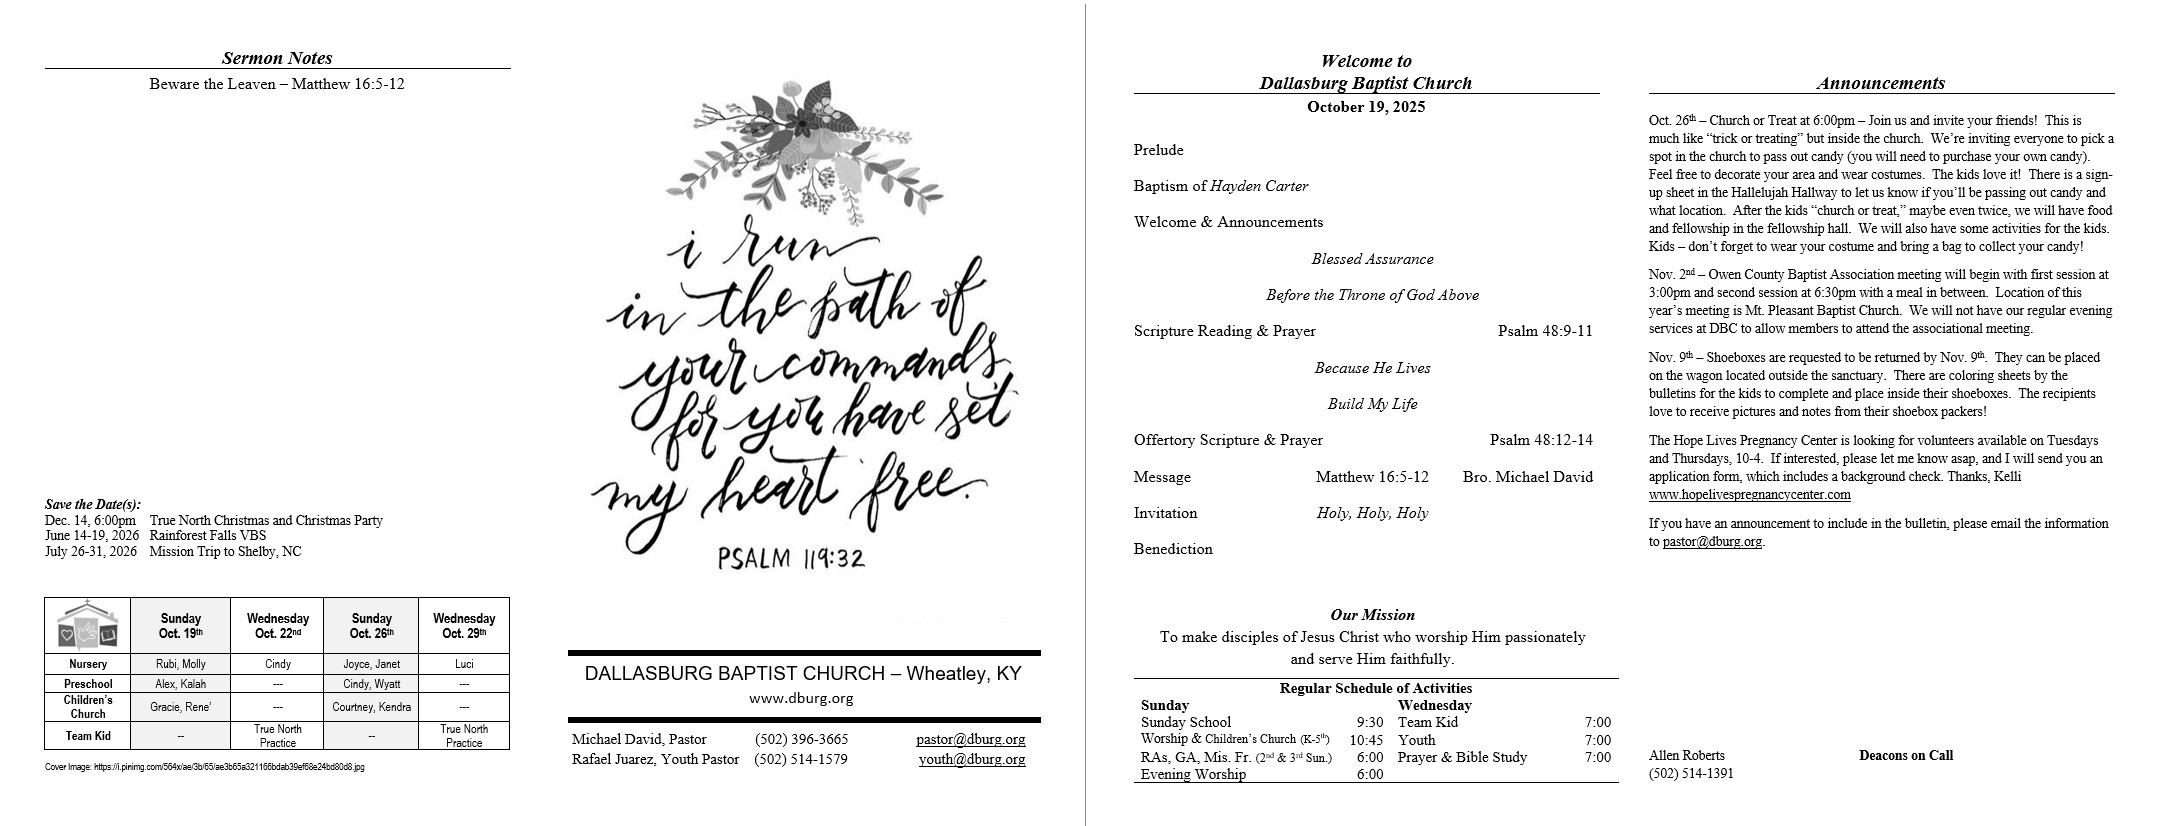 Sermon Notes
Beware the Leaven – Matthew 16:5-12
Save the Date(s):
Dec. 14, 6:00pm True North Christmas and Christmas Party
June 14-19, 2026 Rainforest Falls VBS
July 26-31, 2026 Mission Trip to Shelby, NC
Sunday Oct. 19th Wednesday Oct. 22nd Sunday Oct. 26th Wednesday Oct. 29th
Nursery Rubi, Molly Cindy Joyce, Janet Luci
Preschool Alex, Kalah --- Cindy, Wyatt ---
Children's Church Gracie, Rene' --- Courtney, Kendra ---
Team Kid -- True North Practice -- True North Practice
Cover Image: https://i.pinimg.com/564x/ae/3b/65/ae3b65a321166bdab39ef68e24bd80d8.jpg
i run
in the path of
your commands,
for you have set
my heart free.
PSALM 119:32
DALLASBURG BAPTIST CHURCH – Wheatley, KY
www.dburg.org
Michael David, Pastor (502) 396-3665 pastor@dburg.org
Rafael Juarez, Youth Pastor (502) 514-1579 youth@dburg.org
Welcome to
Dallasburg Baptist Church
October 19, 2025
Prelude
Baptism of Hayden Carter
Welcome & Announcements
Blessed Assurance
Before the Throne of God Above
Scripture Reading & Prayer Psalm 48:9-11
Because He Lives
Build My Life
Offertory Scripture & Prayer Psalm 48:12-14
Message Matthew 16:5-12 Bro. Michael David
Invitation Holy, Holy, Holy
Benediction
Our Mission
To make disciples of Jesus Christ who worship Him passionately
and serve Him faithfully.
Regular Schedule of Activities
Sunday Wednesday
Sunday School 9:30 Team Kid 7:00
Worship & Children's Church (K-5th) 10:45 Youth 7:00
RAs, GA, Mis. Fr. (2nd & 3rd Sun.) 6:00 Prayer & Bible Study 7:00
Evening Worship 6:00
Announcements
Oct. 26th – Church or Treat at 6:00pm – Join us and invite your friends! This is
much like “trick or treating” but inside the church. We're inviting everyone to pick a
spot in the church to pass out candy (you will need to purchase your own candy).
Feel free to decorate your area and wear costumes. The kids love it! There is a sign-
up sheet in the Hallelujah Hallway to let us know if you'll be passing out candy and
what location. After the kids “church or treat,” maybe even twice, we will have food
and fellowship in the fellowship hall. We will also have some activities for the kids.
Kids – don't forget to wear your costume and bring a bag to collect your candy!
Nov. 2nd – Owen County Baptist Association meeting will begin with first session at
3:00pm and second session at 6:30pm with a meal in between. Location of this
year's meeting is Mt. Pleasant Baptist Church. We will not have our regular evening
services at DBC to allow members to attend the associational meeting.
Nov. 9th – Shoeboxes are requested to be returned by Nov. 9th. They can be placed
on the wagon located outside the sanctuary. There are coloring sheets by the
bulletins for the kids to complete and place inside their shoeboxes. The recipients
love to receive pictures and notes from their shoebox packers!
The Hope Lives Pregnancy Center is looking for volunteers available on Tuesdays
and Thursdays, 10-4. If interested, please let me know asap, and I will send you an
application form, which includes a background check. Thanks, Kelli
www.hopelivespregnancycenter.com
If you have an announcement to include in the bulletin, please email the information
to pastor@dburg.org.
Allen Roberts Deacons on Call
(502) 514-1391